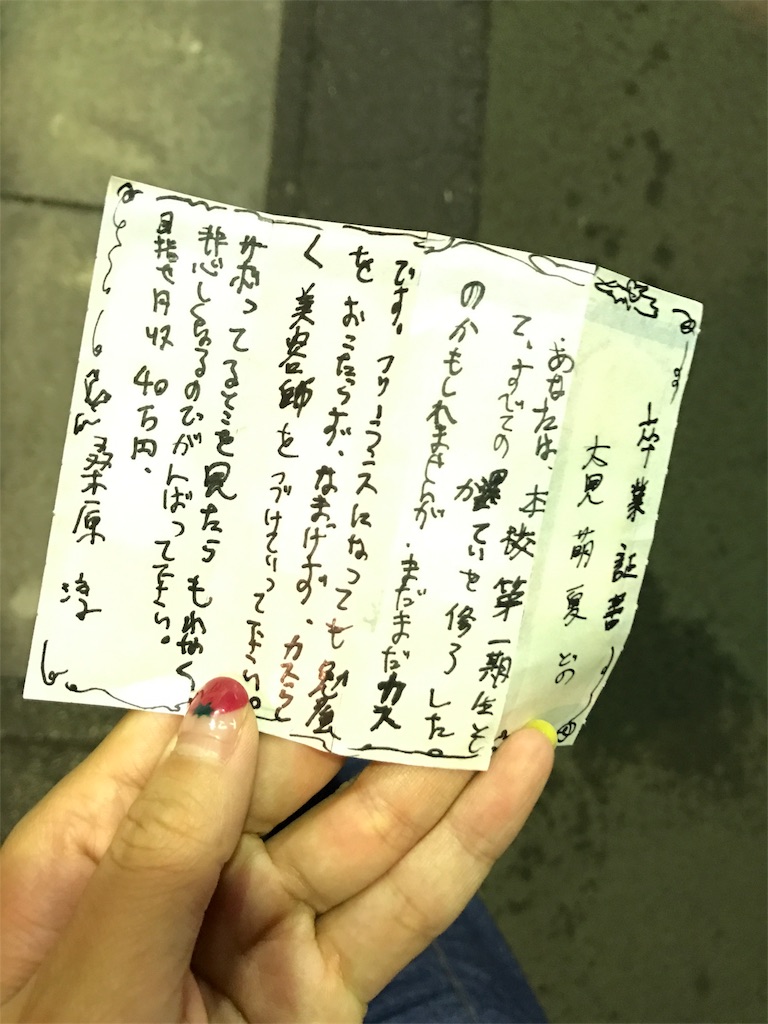 卒業証書
大見 萌夏 どの
あなたは、本校第一期生と
て、すでての課ていを修了した
のかもしれませんが、まだまだカス
です。フリーランスになっても勉強
をおこたらず、なまけず、カスらし
く 美容師をつづけていって下さい。
サボってるとこを見たらもれなく
悲しくなるのでがんばって下さい。
目指せ月収 40万円、
桑原 淳